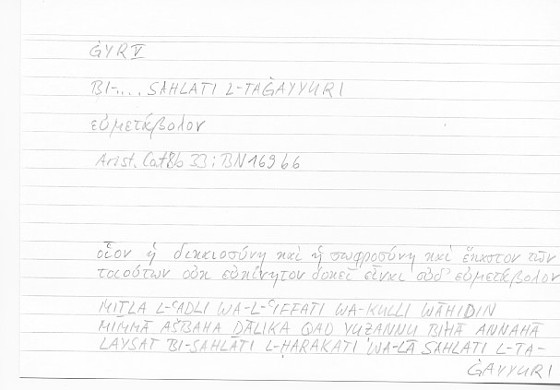 ĠYR V
BI-... SAHLATI L-TAĠAYYURI
εὐμετάβολον
Arist. Cat 8b 33; BN 169 b6
οἷον ἡ δικαιοσύνη καὶ ἡ σωφροσύνη καὶ ἕκαστον τῶν
τοιούτων οὐκ εὐκίνητον δοκεῖ εἶναι οὐδ' εὐμετάβολον
MIṮLA L-ʿADLI WA-L-ʿIFFATI WA-KULLI WĀḤIDIN
MIMMĀ AŠBAHA ḎĀLIKA QAD YUẒANNU BIHĀ ANNAHĀ
LAYSAT BI-SAHLATI L-ḤARAKATI WA-LĀ SAHLATI L-TA-
ĠAYYURI